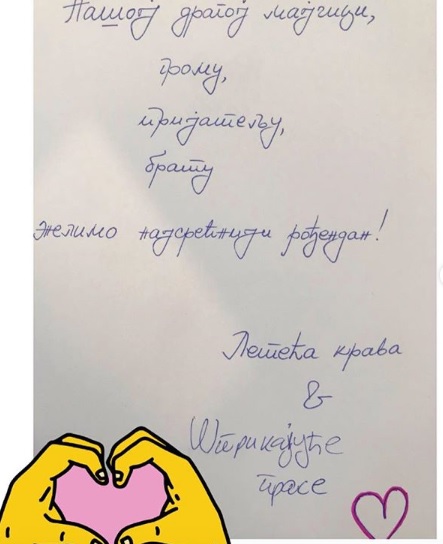 Нашој драгој мајчици,
грому,
пријатељу,
брату
желимо најсрећнији рођендан!
Летећа крава
&
Штрикајуће
прасе